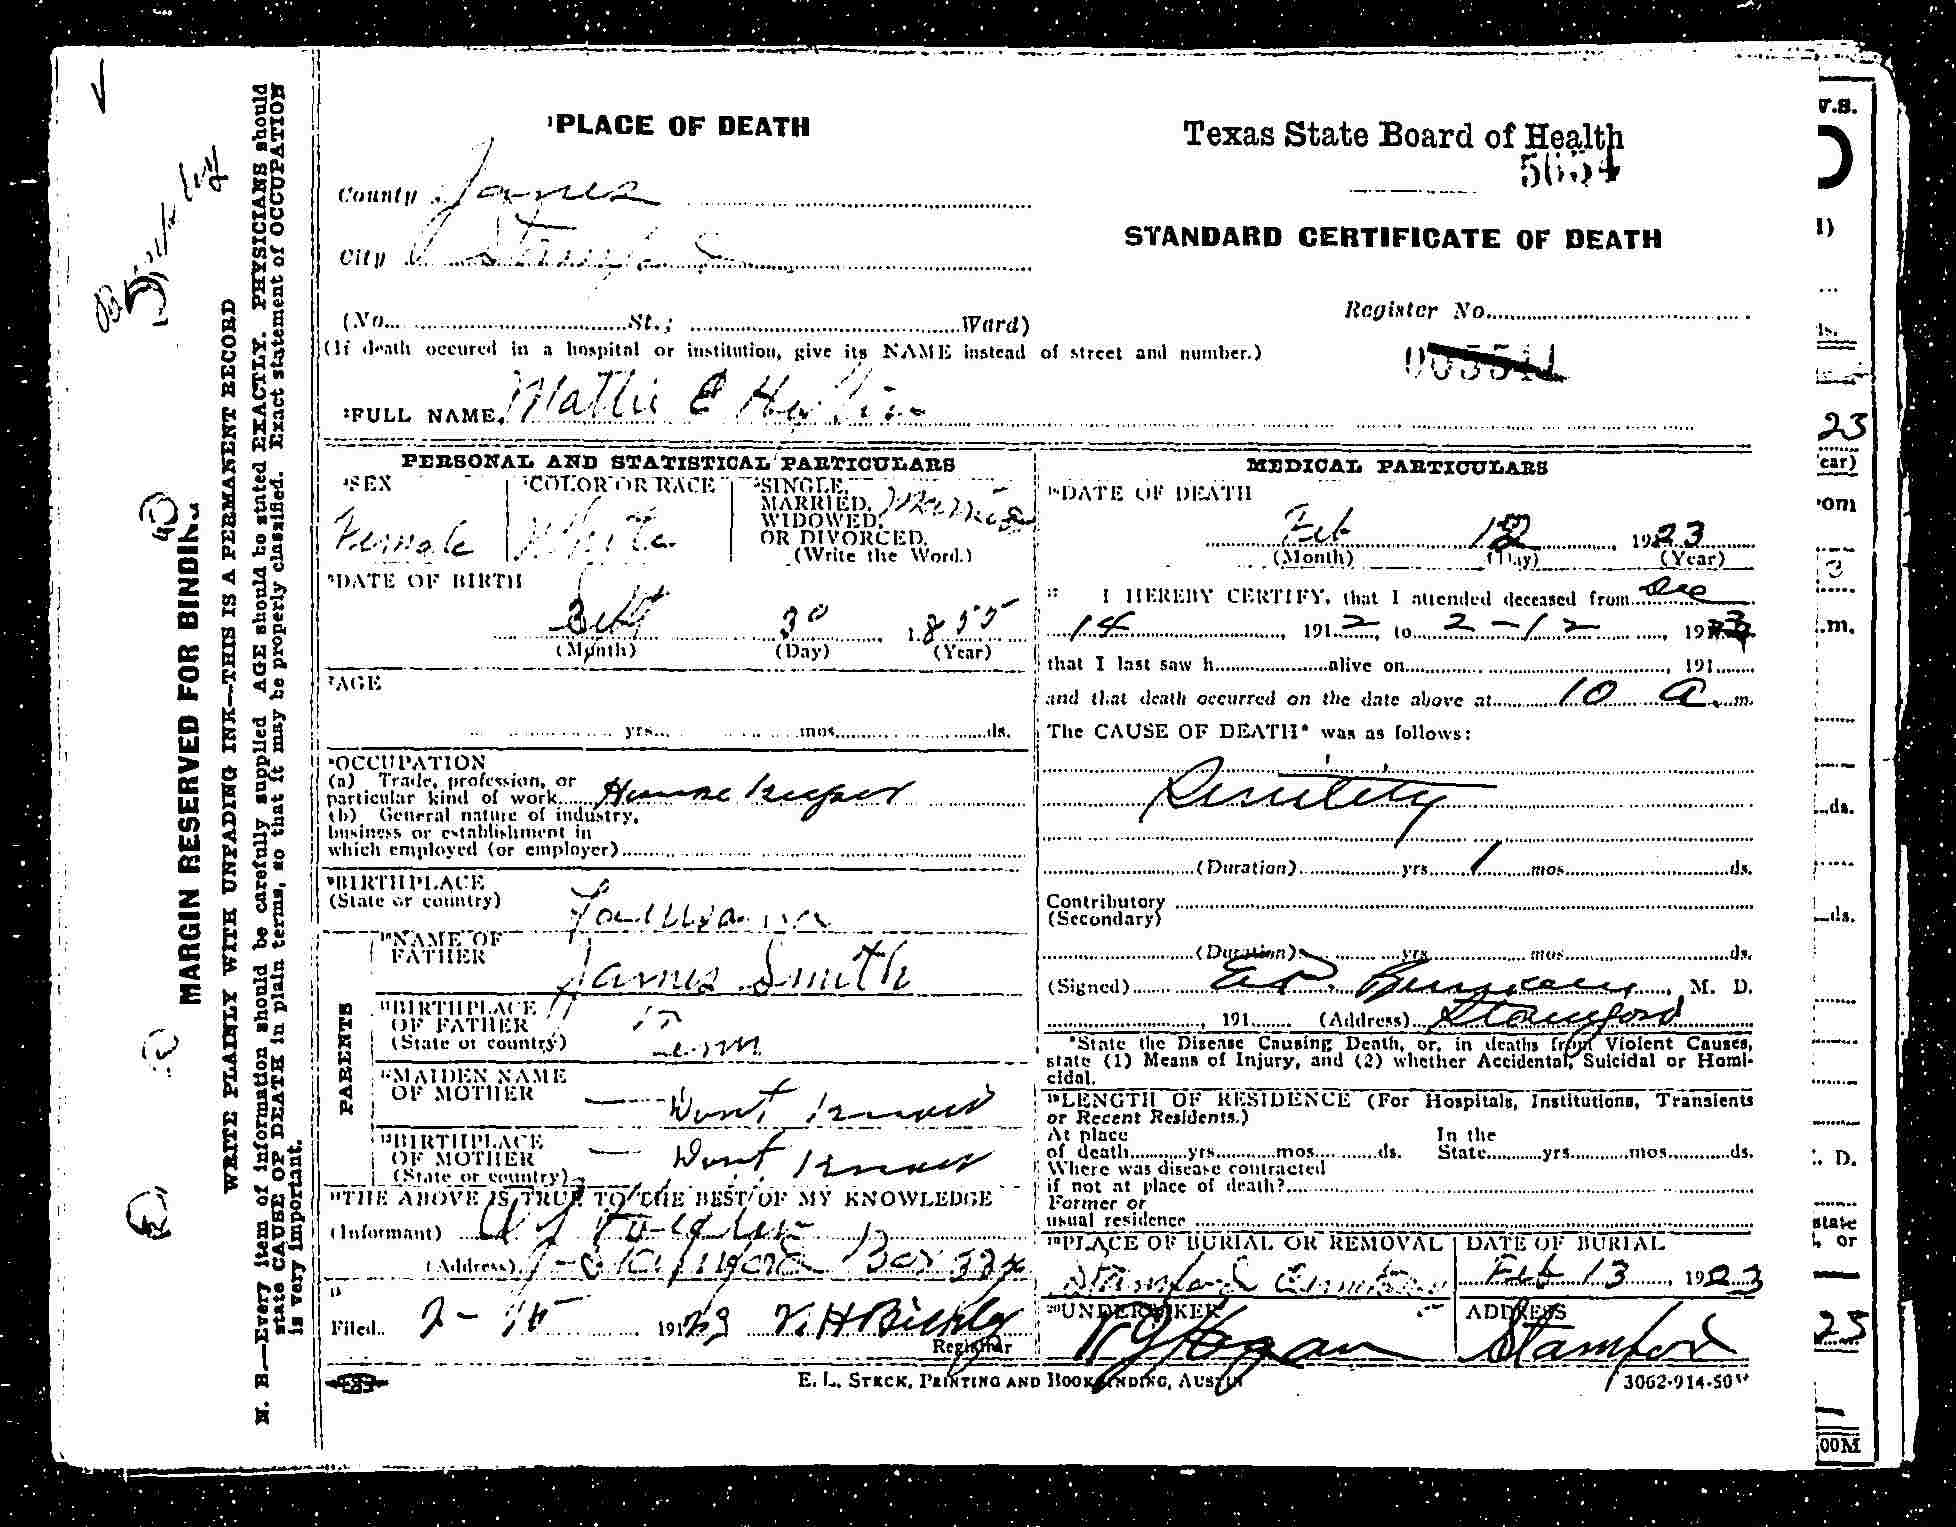 ¹PLACE OF DEATH
County Jones
City Stamford
(No. St.; Ward)
(If death occured in a hospital or institution, give its NAME instead of street and number.)
²FULL NAME Mattie E
Texas State Board of Health
STANDARD CERTIFICATE OF DEATH
Register No.
PERSONAL AND STATISTICAL PARTICULARS
³SEX
Female
⁴COLOR OR RACE
White
⁵SINGLE,
MARRIED,
WIDOWED,
OR DIVORCED.
(Write the Word.)
Married
⁶DATE OF BIRTH
30 1855
(Month) (Day) (Year)
⁷AGE
yrs. mos. ds.
⁸OCCUPATION
(a) Trade, profession, or
particular kind of work House keeper
(b) General nature of industry,
business or establishment in
which employed (or employer)
⁹BIRTHPLACE
(State or country)
Louisiana
PARENTS
¹⁰NAME OF
FATHER
James Smith
¹¹BIRTHPLACE
OF FATHER
(State or country)
Tenn
¹²MAIDEN NAME
OF MOTHER
Dont Know
¹³BIRTHPLACE
OF MOTHER
(State or country)
Dont Know
¹⁴THE ABOVE IS TRUE TO THE BEST OF MY KNOWLEDGE
(Informant)
(Address) Stamford Box
¹⁵
Filed 2- 1923
Registrar
MEDICAL PARTICULARS
¹⁶DATE OF DEATH
Feb 12 1923
(Month) (Day) (Year)
¹⁷ I HEREBY CERTIFY, that I attended deceased from Dec
14 1912, to 2-12, 19
that I last saw h alive on 191
and that death occurred on the date above at 10 a. m.
The CAUSE OF DEATH* was as follows:
Senility
(Duration) yrs. 1 mos. ds.
Contributory
(Secondary)
(Duration) yrs. mos. ds.
(Signed) M. D.
191 (Address) Stamford
*State the Disease Causing Death, or, in deaths from Violent Causes,
state (1) Means of Injury, and (2) whether Accidental, Suicidal or Homi-
cidal.
¹⁸LENGTH OF RESIDENCE (For Hospitals, Institutions, Transients
or Recent Residents.)
At place In the
of death yrs. mos. ds. State yrs. mos. ds.
Where was disease contracted
if not at place of death?
Former or
usual residence
¹⁹PLACE OF BURIAL OR REMOVAL
Stamford Cemetery
DATE OF BURIAL
Feb 13, 1923
²⁰UNDERTAKER
Hogan
ADDRESS
Stamford
E. L. STECK, PRINTING AND BOOKBINDING, AUSTIN
3062-914-50
MARGIN RESERVED FOR BINDING
WRITE PLAINLY WITH UNFADING INK—THIS IS A PERMANENT RECORD
N. B.—Every item of information should be carefully supplied AGE should be stated EXACTLY. PHYSICIANS should
state CAUSE OF DEATH in plain terms, so that it may be properly classified. Exact statement of OCCUPATION
is very important.